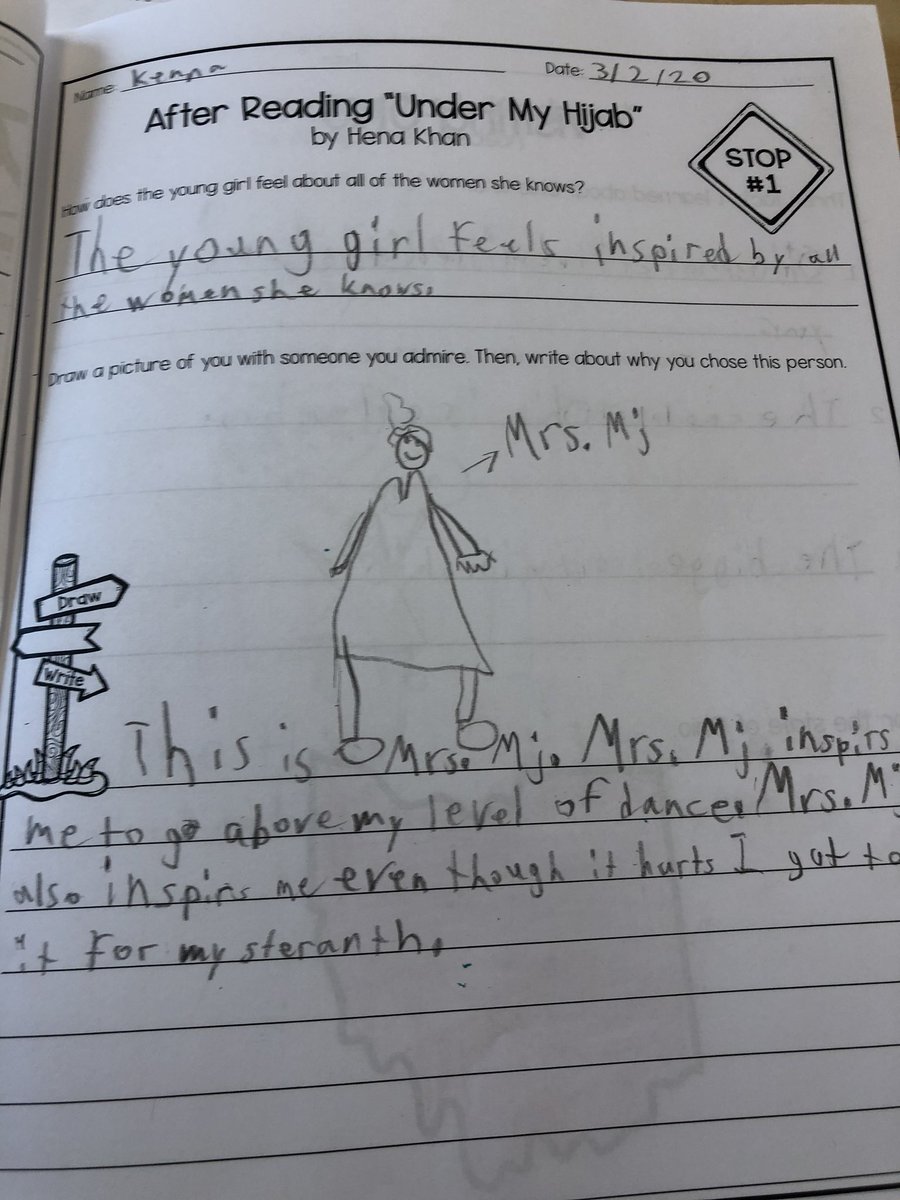 Name: Kenna Date: 3/2/20
After Reading "Under My Hijab"
by Hena Khan
STOP
#1
How does the young girl feel about all of the women she knows?
The young girl feels inspired by all
the women she knows.
Draw a picture of you with someone you admire. Then, write about why you chose this person.
Mrs. Mj
Draw
Write
This is Mrs. Mj. Mrs. Mj inspirs
me to go above my level of dance. Mrs. Mj
also inspirs me even though it hurts I got to
it for my steranth.